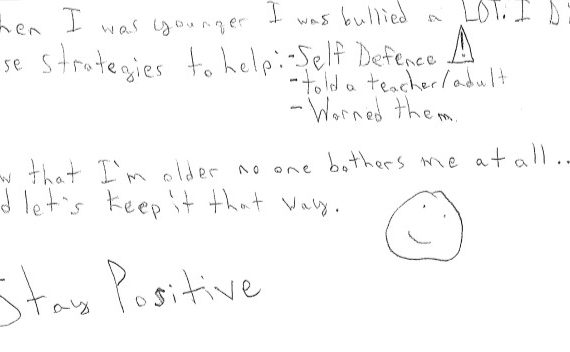 hen I was younger I was bullied a LOT. I D
se strategies to help:-Self Defence
-told a teacher/adult
-Warned them.
w that I'm older no one bothers me at all..
d let's keep it that way.
Stay Positive